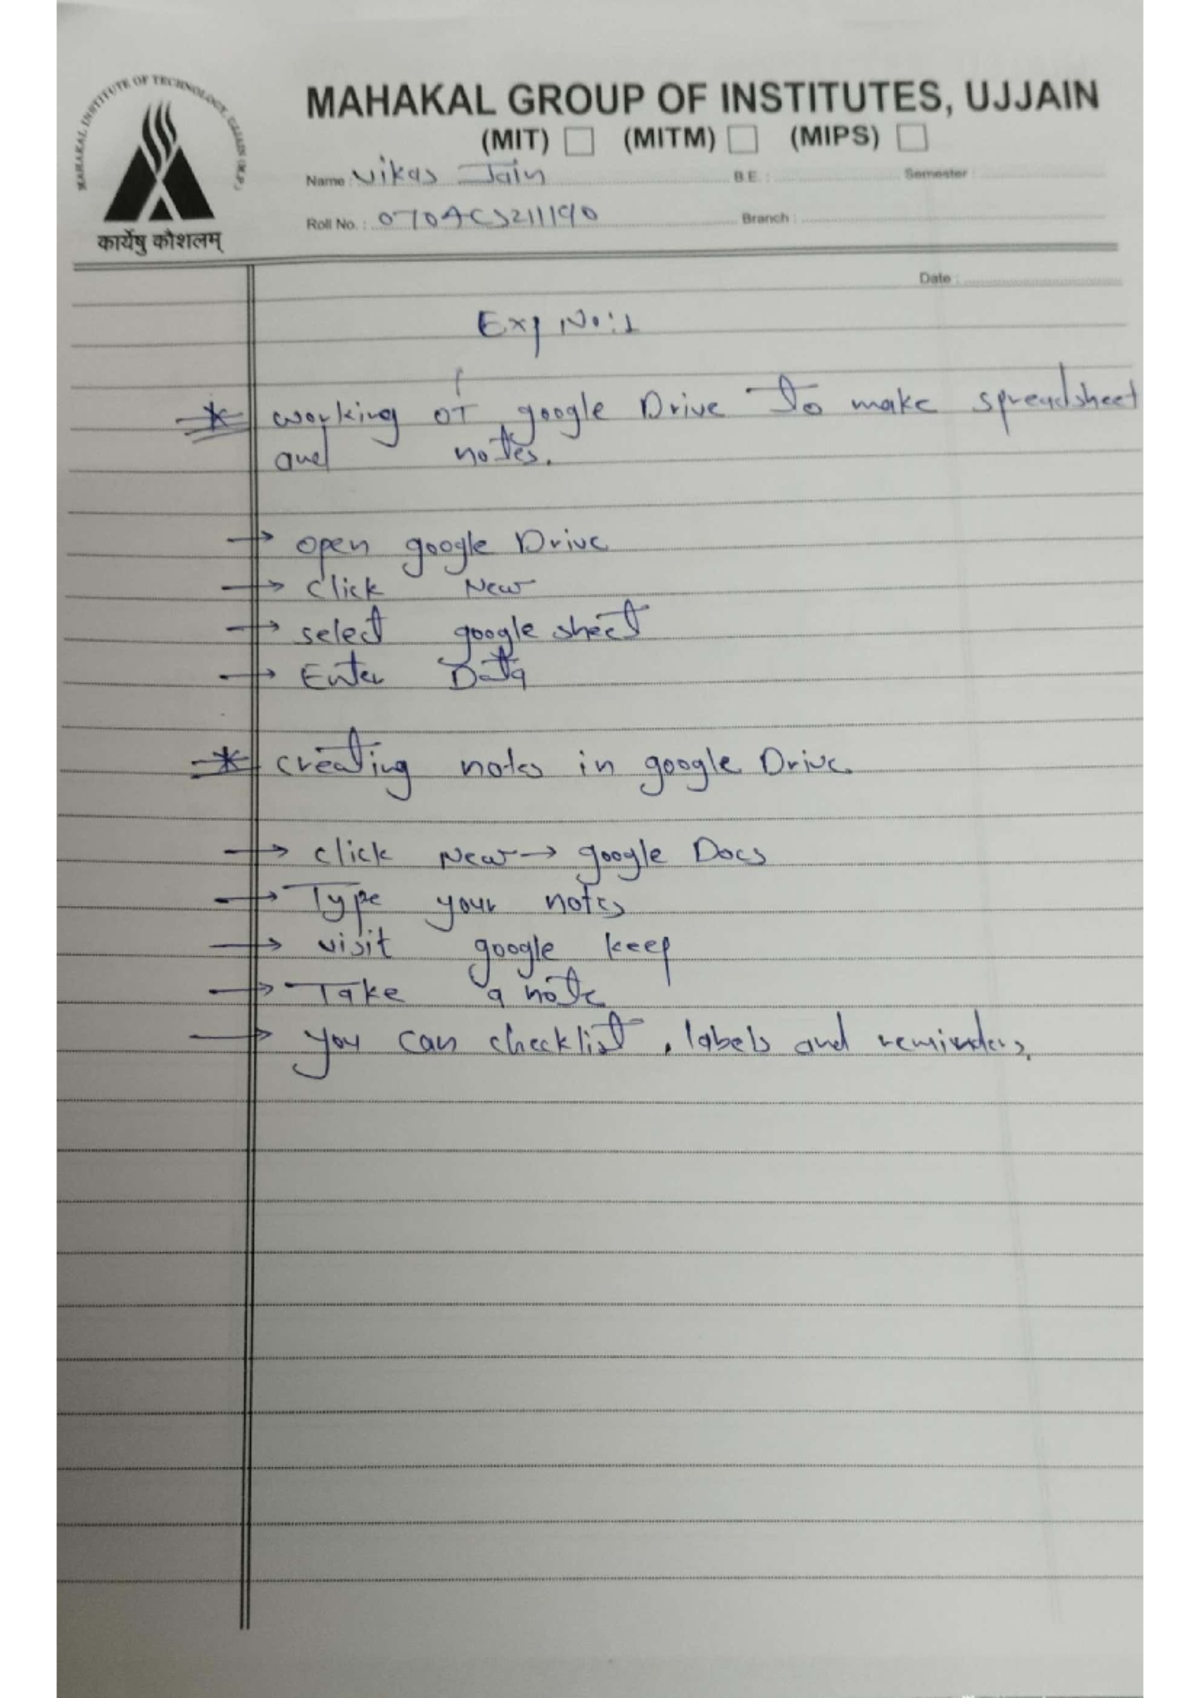 MAHAKAL INSTITUTE OF TECHNOLOGY, UJJAIN (M.P.)
कार्येषु कौशलम्
MAHAKAL GROUP OF INSTITUTES, UJJAIN
(MIT) (MITM) (MIPS)
Name : Vikas Jain B.E. : Semester :
Roll No. : 0704CS211190 Branch :
Date :
Exp No:1
* working of google Drive To make spreadsheet
and notes.
→ open google Drive
→ click New
→ select google sheet
→ Enter Data
* creating notes in google Drive
→ click New → google Docs
→ Type your notes
→ visit google keep
→ Take a note
→ you can checklist, labels and reminders.